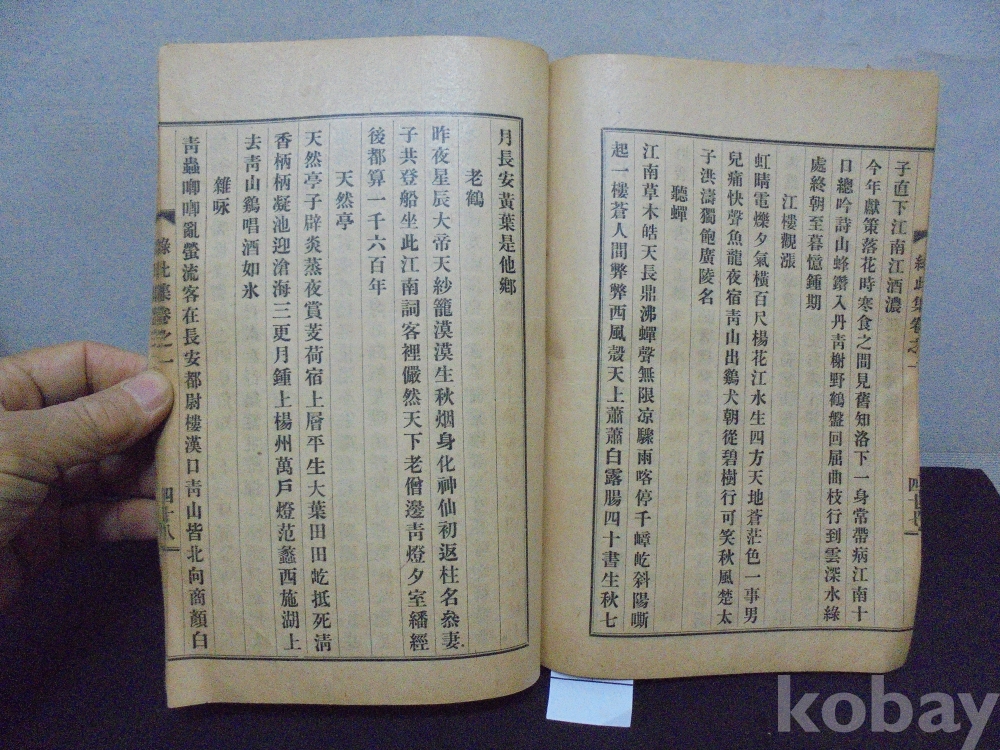 子直下江南江酒濃
今年獻策落花時寒食之間見舊知洛下一身常帶病江南十
口總吟詩山蜂鑽入丹靑榭野鶴盤回屈曲枝行到雲深水綠
處終朝至暮憶鍾期
江樓觀漲
虹晴電爍夕氣橫百尺楊花江水生四方天地蒼茫色一事男
兒痛快聲魚龍夜宿靑山出鷄犬朝從碧樹行可笑秋風楚太
子洪濤獨飽廣陵名
聽蟬
江南草木皓天長鼎沸蟬聲無限凉驟雨喀停千嶂屹斜陽嘶
起一樓蒼人間弊弊西風殼天上蕭蕭白露腸四十書生秋七
綠此集卷之一
四十七
月長安黃葉是他鄕
老鶴
昨夜星辰大帝天紗籠漠漠生秋烟身化神仙初返柱名叅妻
子共登船坐此江南詞客裡儼然天下老僧邊靑燈夕室繙經
後都算一千六百年
天然亭
天然亭子辟炎蒸夜賞芰荷宿上層平生大葉田田屹抵死淸
香柄柄凝池迎滄海三更月鍾上楊州萬戶燈范蠡西施湖上
去靑山鷄唱酒如氷
雜咏
靑蟲喞喞亂螢流客在長安都尉樓漢口靑山皆北向商顏白
綠此集卷之一
四十八
kobay